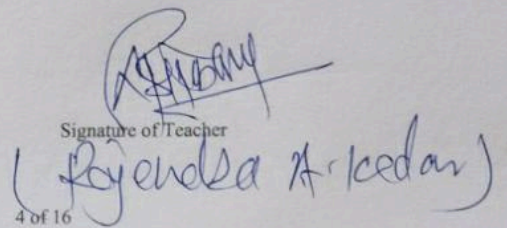 Signature of Teacher
( Rajendra A. Kedar )
4 of 16